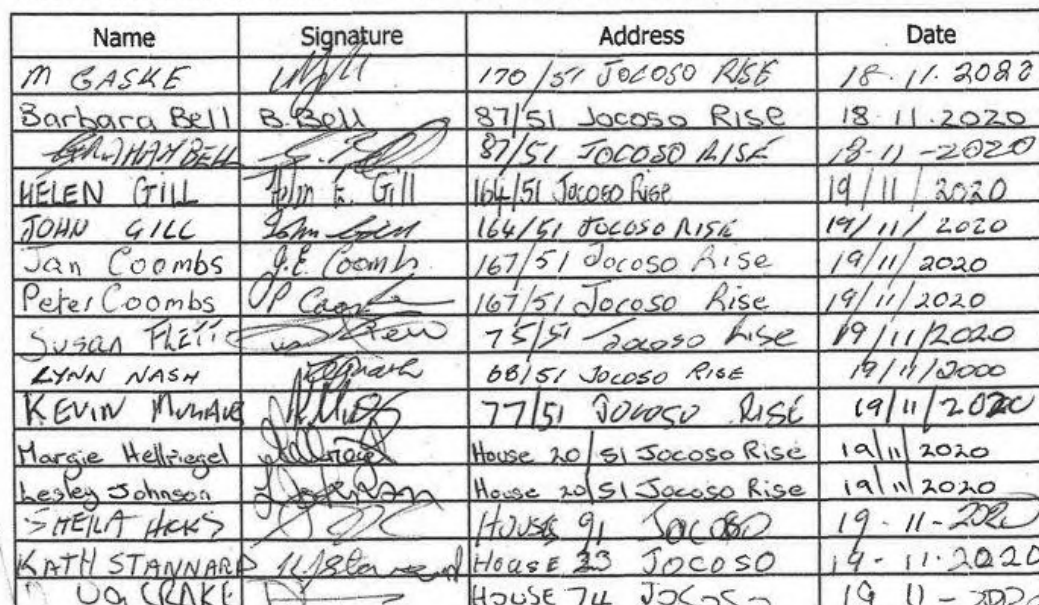 Name Signature Address Date
M GASKE 170/51 JOCOSO RISE 18.11.2020
Barbara Bell B. Bell 87/51 Jocoso Rise 18.11.2020
GRAHAM BELL 87/51 JOCOSO RISE 18-11-2020
HELEN GILL Helen E. Gill 164/51 Jocoso Rise 19/11/2020
JOHN GILL John Gill 164/51 JOCOSO RISE 19/11/2020
Jan Coombs J.E. Coombs 167/51 Jocoso Rise 19/11/2020
Peter Coombs P Coombs 167/51 Jocoso Rise 19/11/2020
Susan FLETT 75/51 Jocoso Rise 19/11/2020
LYNN NASH 68/51 JOCOSO RISE 19/11/2000
KEVIN 77/51 JOCOSO RISE 19/11/2020
Margie Hellriegel House 20/51 Jocoso Rise 19/11/2020
Lesley Johnson House 20/51 Jocoso Rise 19/11/2020
SHEILA HICKS HOUSE 91 JOCOSO 19-11-2020
KATH STANNARD K. Stannard HOUSE 33 JOCOSO 19-11-2020
CRAKE HOUSE 74 JOCOSO 19 11-2020